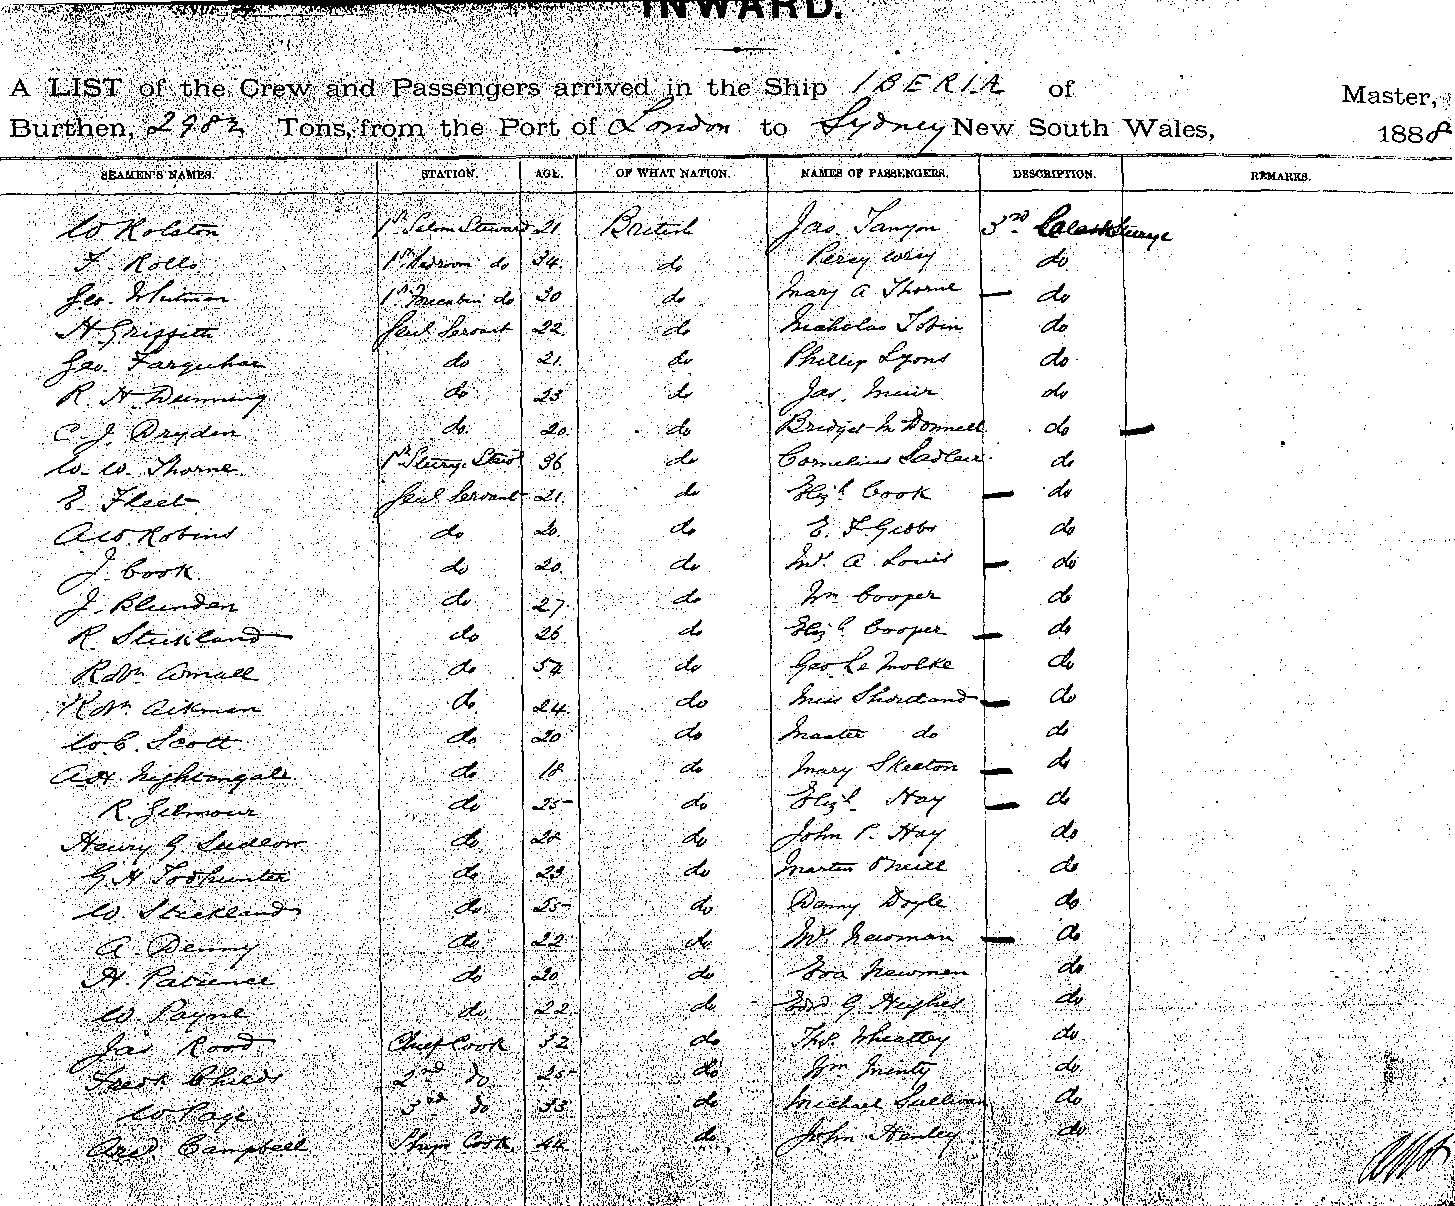 INWARD.
A LIST of the Crew and Passengers arrived in the Ship IBERIA of Master,
Burthen, 2982 Tons, from the Port of London to Sydney New South Wales, 1888
SEAMEN'S NAMES. STATION. AGE. OF WHAT NATION. NAMES OF PASSENGERS. DESCRIPTION. REMARKS.
W Rolston 1st Saloon Steward 21 British Jas. Tanyon 3rd
F. Rolls 1st Bedroom do 34 do Percy Wry do
Geo. Whitman do 30 do Mary A Thorne — do
H Griffith Genl Servant 22 do Nicholas Tobin do
Geo. Farquhar do 21 do Phillip Lyons do
R. H. Dunning do 23 do Jas. Muir do
C. J. Dryden do 20 do Bridget McDonnell do —
W. W. Thorne 1st Steerge Stewd 36 do Cornelius Sadleir do
E Fleet Genl Servant 21 do Elizh Cook — do
A W. Robins do 20 do E. F Gibbs do
J. Cook do 20 do Mrs. A Louis — do
J. Blunden do 27 do Wm Cooper do
R. Stickland do 26 do Elizh Cooper — do
Robt do 54 do Geo Le do
Robt. Aikman do 24 do Miss Shortland — do
W. C. Scott do 20 do Master do do
A H. Nightingale do 18 do Mary Skelton — do
R. Gilmour do 25 do Elizh Hay — do
Henry G Ludlow do 28 do John P. Hay do
G H Todhunter do 23 do Martin O'Neill do
W. Stickland do 25 do Danny Doyle do
A. Denny do 22 do Mrs. Newman — do
H. Patience do 20 do Eva Newman do
W. Payne do 22 do Edwd G. Hughes do
Jas Rood Chief Cook 32 do Thos. Wheatley do
Fredk Childs 2nd do 25 do Wm Minty do
W Page 3rd do 33 do Michael Sullivan do
Campbell Ships Cook 44 do John Henley do